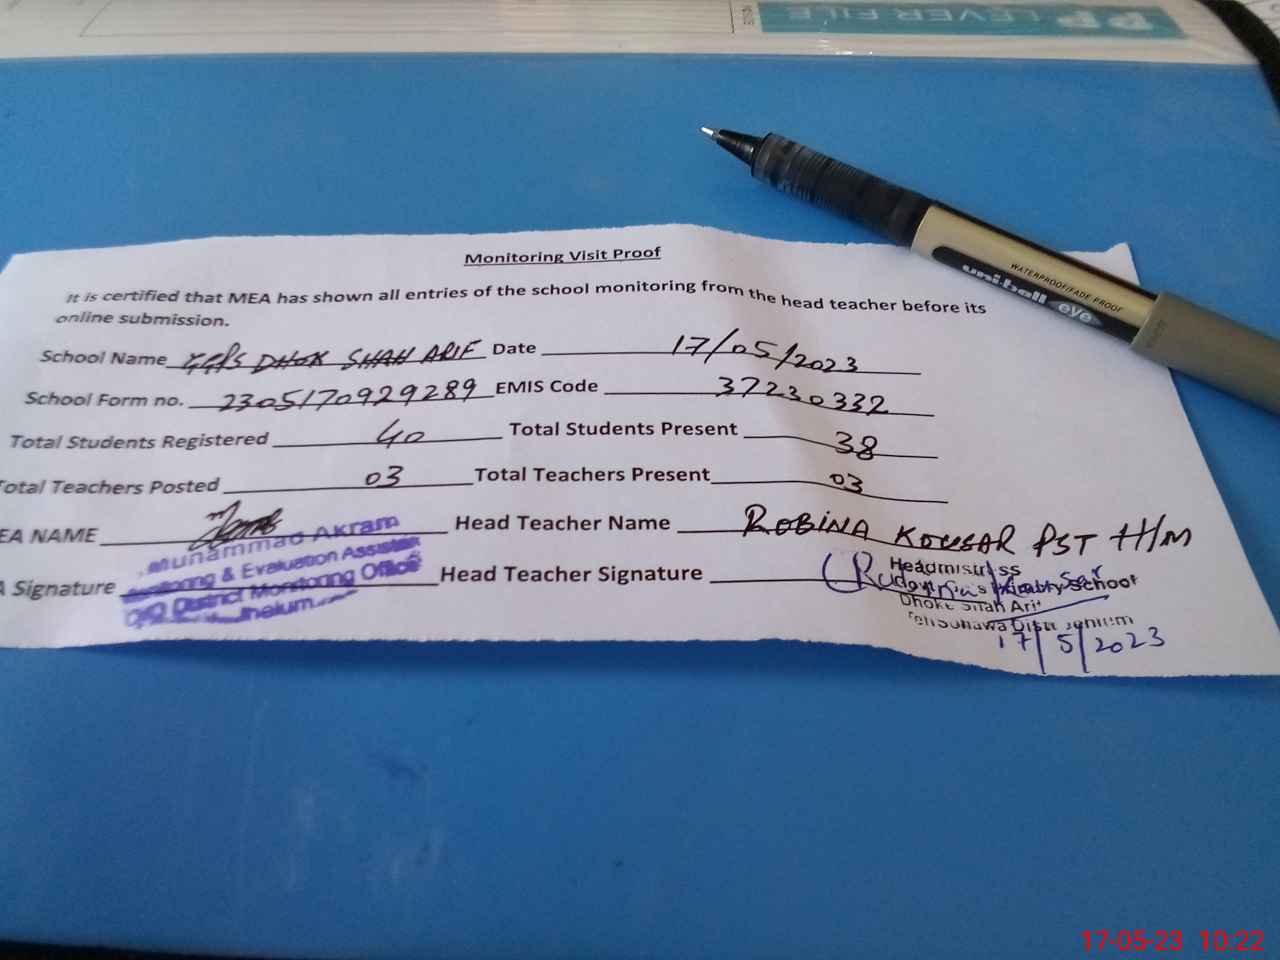 PP LEVER FILE
Monitoring Visit Proof
It is certified that MEA has shown all entries of the school monitoring from the head teacher before its
online submission.
School Name GGPS DHOK SHAH ARIF Date 17/05/2023
School Form no. 2305170929289 EMIS Code 37230332
Total Students Registered 40 Total Students Present 38
Total Teachers Posted 03 Total Teachers Present 03
EA NAME Head Teacher Name ROBINA KOUSAR PST H/M
Muhammad Akram
A Signature Head Teacher Signature
Monitoring & Evaluation Assistan
O/O District Monitoring Office
Jhelum
Headmistress
Primary School
Dhoke Shah Arif
Teh Sohawa Distt Jehlum
17/5/2023
uni-ball eye
WATERPROOF/FADE PROOF
17-05-23 10:22